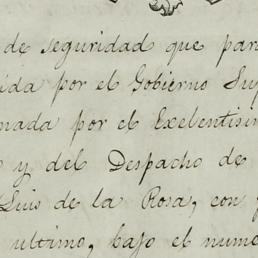 de seguridad que par
ida por el Gobierno Sup
mada por el Exelentisi
y del Despacho de
Luis de la Rosa, con
ultimo, bajo el nume